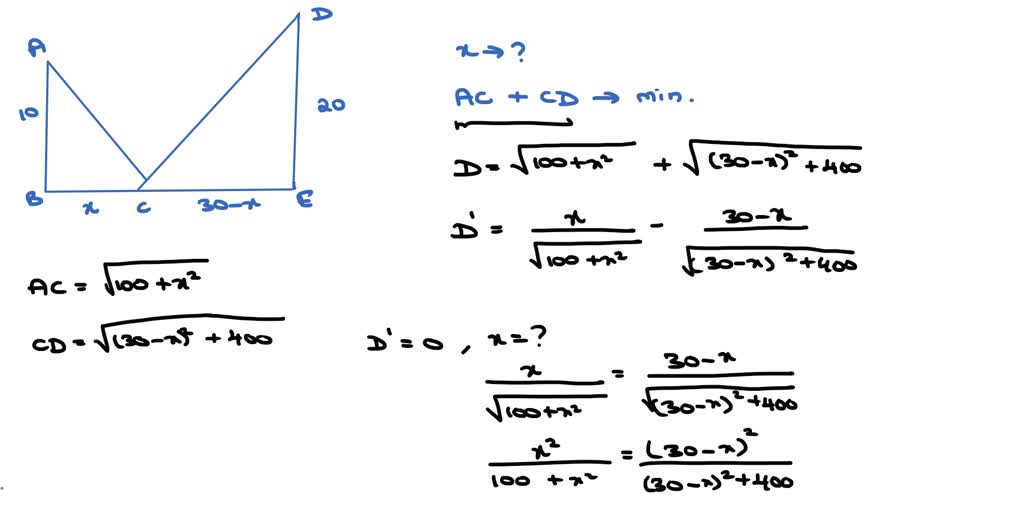 A
10
B
x
C
30-x
E
20
D
x → ?
AC + CD → min.
D = √(100+x²) + √((30-x)²+400)
D' = x/√(100+x²) - (30-x)/√((30-x)²+400)
AC = √(100+x²)
CD = √((30-x)²+400)
D' = 0, x = ?
x/√(100+x²) = (30-x)/√((30-x)²+400)
x²/(100+x²) = (30-x)²/((30-x)²+400)